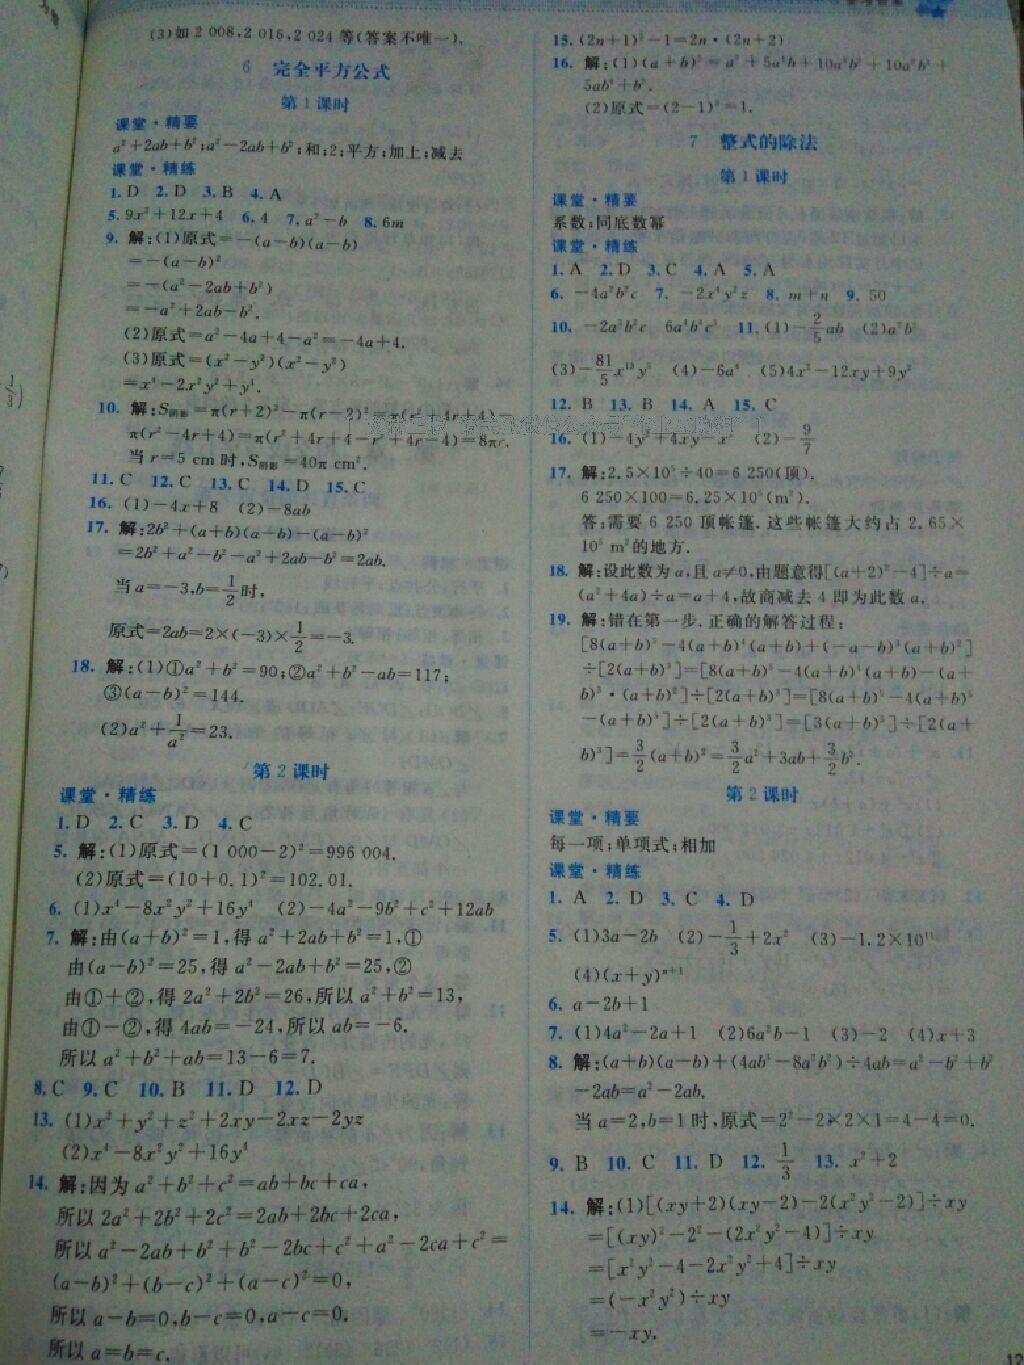 (3)如2 008,2 016,2 024等(答案不唯一).
6 完全平方公式
第1课时
课堂·精要
a²+2ab+b²;a²-2ab+b²;和;2;平方;加上;减去
课堂·精练
1. D 2. D 3. B 4. A
5. 9x²+12x+4 6. 4 7. a²-b 8. 6m
9. 解:(1)原式=-(a-b)(a-b)
=-(a-b)²
=-(a²-2ab+b²)
=-a²+2ab-b².
(2)原式=a²-4a+4-a²=-4a+4.
(3)原式=(x²-y²)(x²-y²)
=x⁴-2x²y²+y⁴.
10. 解:S阴影=π(r+2)²-π(r-2)²=π(r²+4r+4)-
π(r²-4r+4)=π(r²+4r+4-r²+4r-4)=8πr.
当r=5 cm时,S阴影=40π cm².
11. C 12. C 13. C 14. D 15. C
16. (1)-4x+8 (2)-8ab
17. 解:2b²+(a+b)(a-b)-(a-b)²
=2b²+a²-b²-a²+2ab-b²=2ab.
当a=-3,b=1/2时,
原式=2ab=2×(-3)×1/2=-3.
18. 解:(1)①a²+b²=90;②a²+b²-ab=117;
③(a-b)²=144.
(2)a²+1/a²=23.
第2课时
课堂·精练
1. D 2. C 3. D 4. C
5. 解:(1)原式=(1 000-2)²=996 004.
(2)原式=(10+0.1)²=102.01.
6. (1)x⁴-8x²y²+16y⁴ (2)-4a²-9b²+c²+12ab
7. 解:由(a+b)²=1,得a²+2ab+b²=1,①
由(a-b)²=25,得a²-2ab+b²=25,②
由①+②,得2a²+2b²=26,所以a²+b²=13,
由①-②,得4ab=-24,所以ab=-6.
所以a²+b²+ab=13-6=7.
8. C 9. C 10. B 11. D 12. D
13. (1)x²+y²+z²+2xy-2xz-2yz
(2)x⁴-8x²y²+16y⁴
14. 解:因为a²+b²+c²=ab+bc+ca,
所以2a²+2b²+2c²=2ab+2bc+2ca,
所以a²-2ab+b²+b²-2bc+c²+a²-2ca+c²=
(a-b)²+(b-c)²+(a-c)²=0,
所以a-b=0,b-c=0,a-c=0,
所以a=b=c.
15. (2n+1)²-1=2n·(2n+2)
16. 解:(1)(a+b)⁵=a⁵+5a⁴b+10a³b²+10a²b³+
5ab⁴+b⁵.
(2)原式=(2-1)⁵=1.
7 整式的除法
第1课时
课堂·精要
系数;同底数幂
课堂·精练
1. A 2. D 3. C 4. A 5. A
6. -4a²b²c 7. -2x⁴y²z 8. m+n 9. 50
10. -2a³b²c 6a⁴b²c³ 11. (1)-2/5ab (2)a²b²
(3)-81/5x¹³y⁵ (4)-6a⁴ (5)4x²-12xy+9y²
12. B 13. B 14. A 15. C
16. (1)-4y²+4xy-x² (2)-9/7
17. 解:2.5×10⁵÷40=6 250(顶).
6 250×100=6.25×10⁵(m²).
答:需要6 250顶帐篷.这些帐篷大约占2.65×
10⁵ m²的地方.
18. 解:设此数为a,且a≠0,由题意得[(a+2)²-4]÷a=
(a²+4a)÷a=a+4,故商减去4即为此数a.
19. 解:错在第一步.正确的解答过程:
[8(a+b)⁵-4(a+b)⁴(a+b)+(-a-b)³(a+b)²]
÷[2(a+b)³]=[8(a+b)⁵-4(a+b)⁴(a+b)-(a+
b)³·(a+b)²]÷[2(a+b)³]=[8(a+b)⁵-4(a+b)⁵
-(a+b)⁵]÷[2(a+b)³]=[3(a+b)⁵]÷[2(a+
b)³]=3/2(a+b)²=3/2a²+3ab+3/2b².
第2课时
课堂·精要
每一项;单项式;相加
课堂·精练
1. A 2. D 3. C 4. D
5. (1)3a-2b (2)-1/3+2x² (3)-1.2×10¹¹
(4)(x+y)ⁿ⁺¹
6. a-2b+1
7. (1)4a²-2a+1 (2)6a²b-1 (3)-2 (4)x+3
8. 解:(a+b)(a-b)+(4ab³-8a²b²)÷4ab=a²-b²+b²
-2ab=a²-2ab.
当a=2,b=1时,原式=2²-2×2×1=4-4=0.
9. B 10. C 11. D 12. 1/3 13. x²+2
14. 解:(1)[(xy+2)(xy-2)-2(x²y²-2)]÷xy
=[(xy)²-2²-(2x²y²-4)]÷xy
=[x²y²-4-2x²y²+4]÷xy
=(-x²y²)÷xy
=-xy.